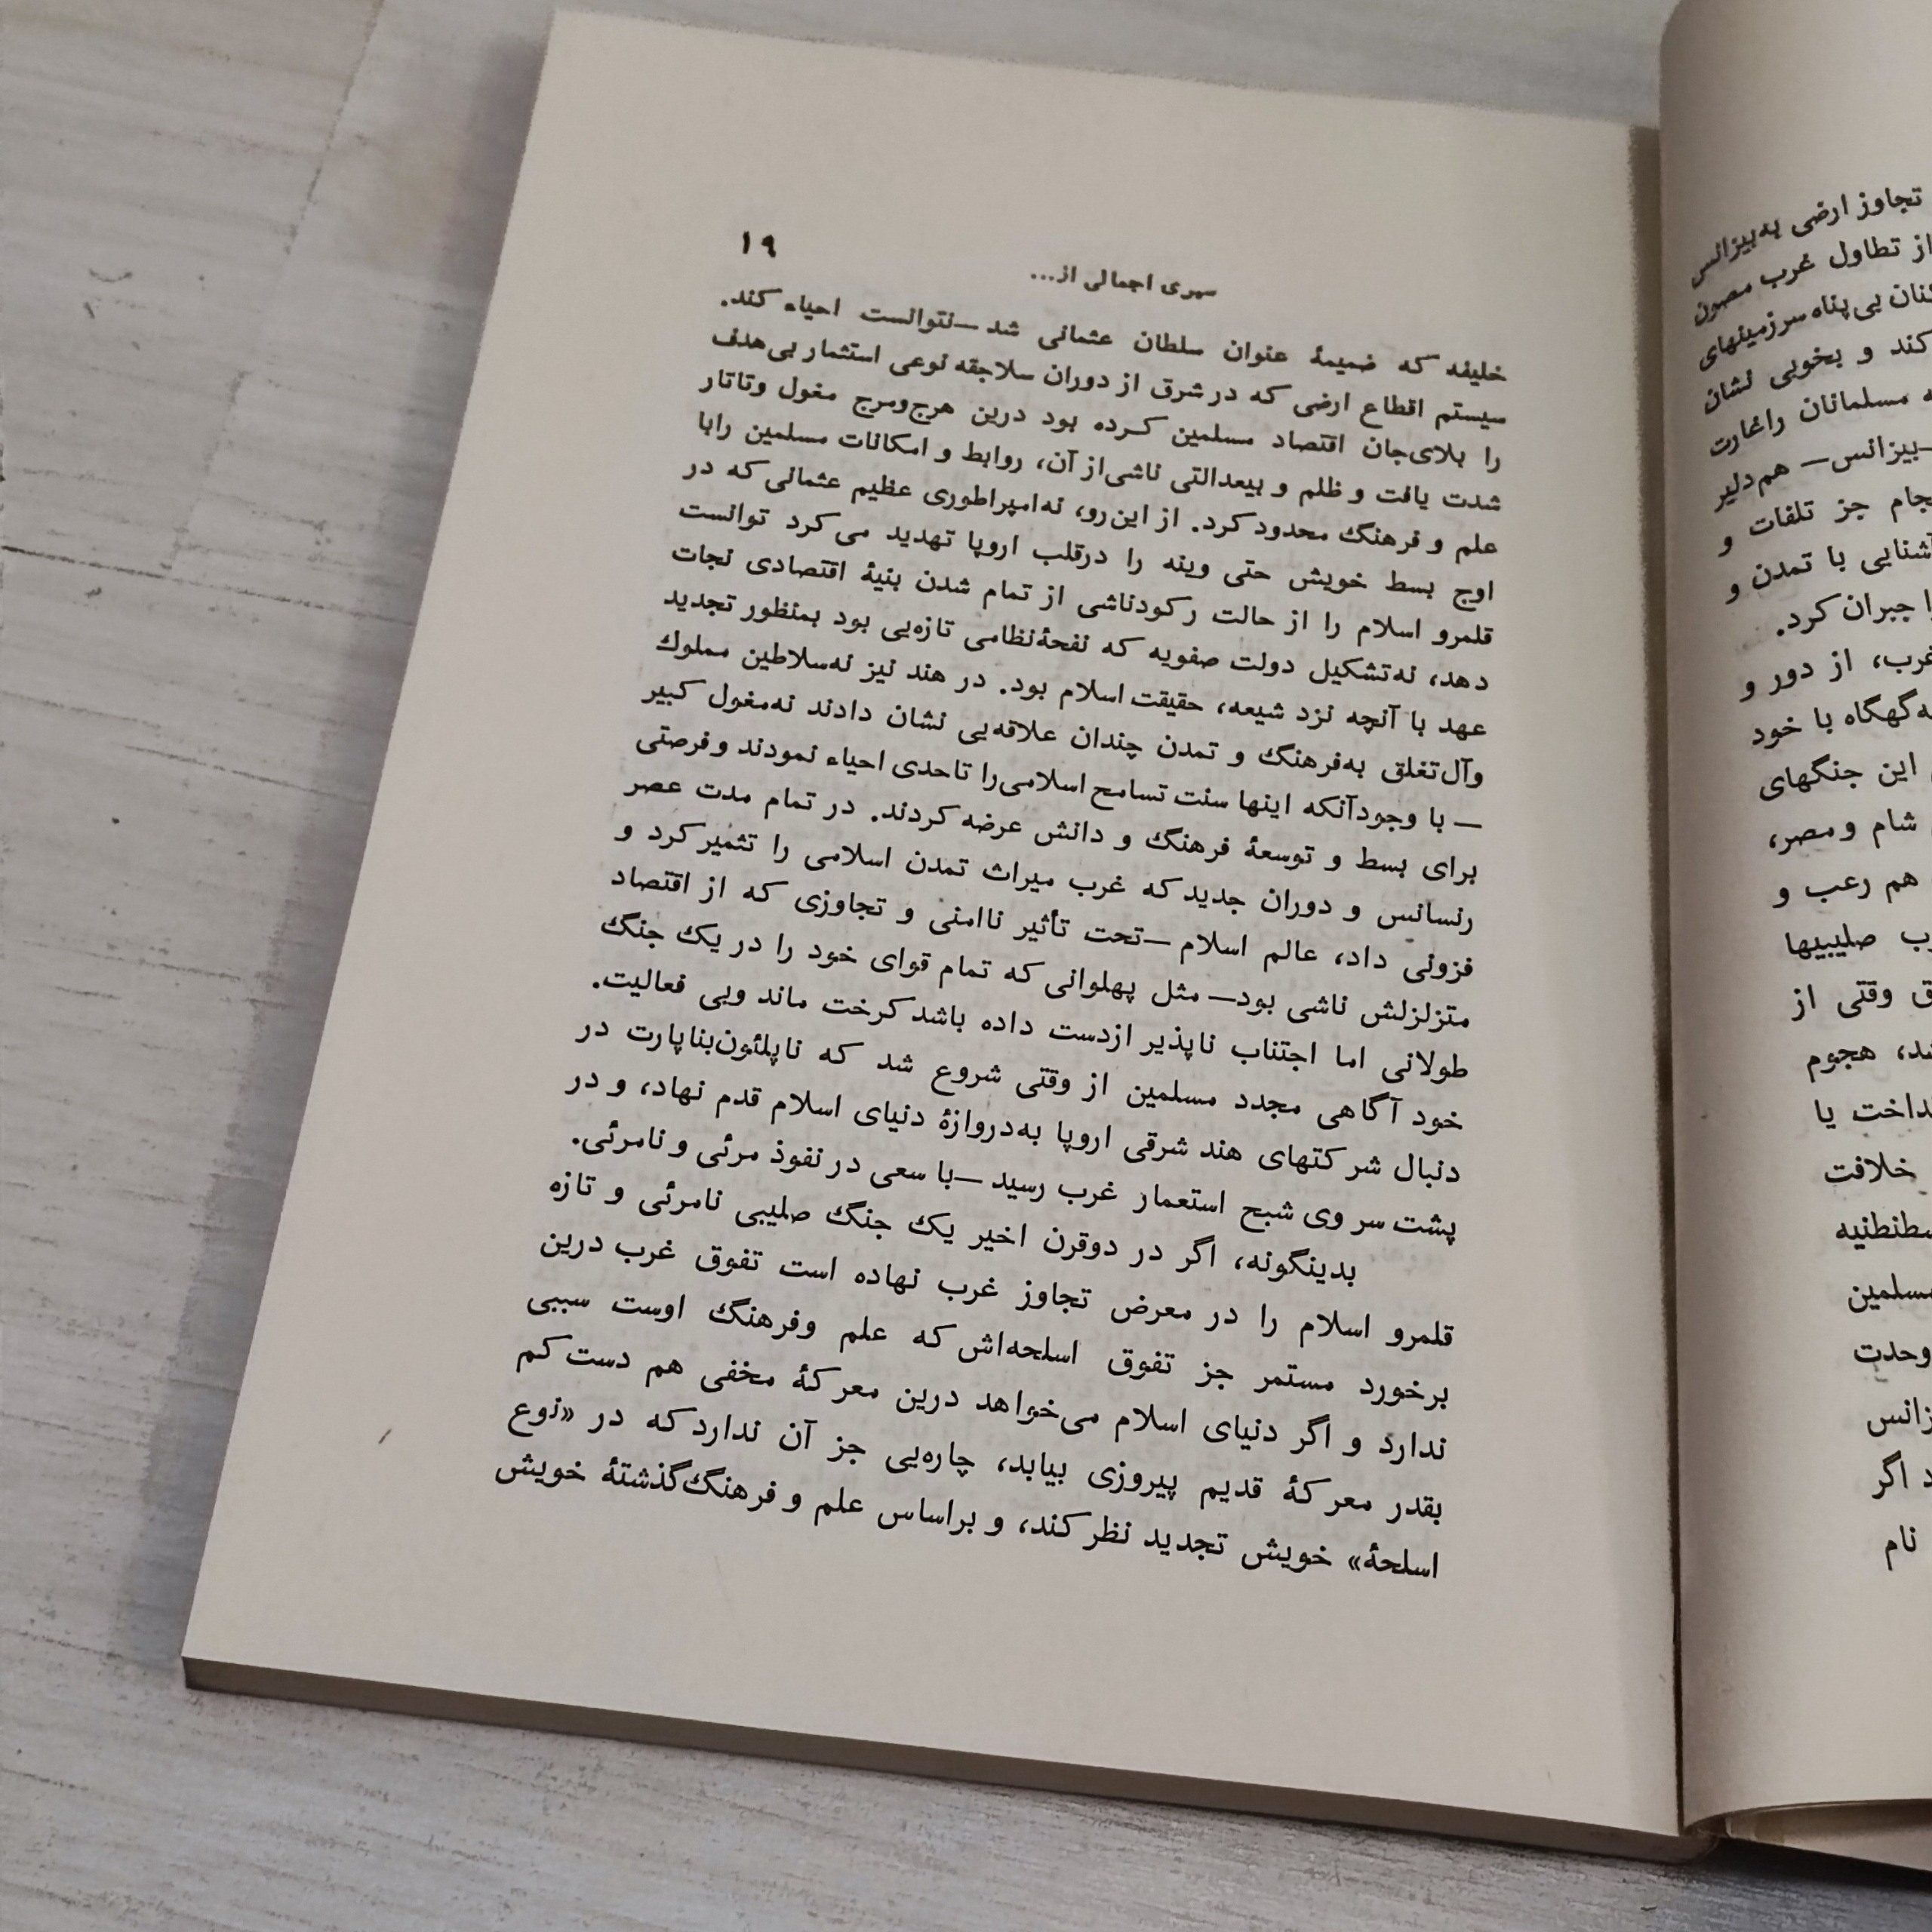 سیری اجمالی از...
۱۹
خلیفه که ضمیمهٔ عنوان سلطان عثمانی شد—نتوانست احیاء کند.
سیستم اقطاع ارضی که در شرق از دوران سلاجقه نوعی استثمار بی‌هدف
را بلای‌جان اقتصاد مسلمین کرده بود درین هرج‌ومرج مغول وتاتار
شدت یافت و ظلم و بیعدالتی ناشی‌از آن، روابط و امکانات مسلمین رابا
علم و فرهنگ محدود کرد. از این‌رو، نه‌امپراطوری عظیم عثمانی که در
اوج بسط خویش حتی وینه را درقلب اروپا تهدید می‌کرد توانست
قلمرو اسلام را از حالت رکودناشی از تمام شدن بنیهٔ اقتصادی نجات
دهد، نه‌تشکیل دولت صفویه که نفحهٔ‌نظامی تازه‌یی بود بمنظور تجدید
عهد با آنچه نزد شیعه، حقیقت اسلام بود. در هند نیز نه‌سلاطین مملوک
وآل‌تغلق به‌فرهنگ و تمدن چندان علاقه‌یی نشان دادند نه‌مغول کبیر
— با وجودآنکه اینها سنت تسامح اسلامی‌را تاحدی احیاء نمودند وفرصتی
برای بسط و توسعهٔ فرهنگ و دانش عرضه کردند. در تمام مدت عصر
رنسانس و دوران جدید که غرب میراث تمدن اسلامی را تثمیر کرد و
فزونی داد، عالم اسلام —تحت تأثیر ناامنی و تجاوزی که از اقتصاد
متزلزلش ناشی بود— مثل پهلوانی که تمام قوای خود را در یک جنگ
طولانی اما اجتناب ناپذیر ازدست داده باشد کرخت ماند وبی فعالیت.
خود آگاهی مجدد مسلمین از وقتی شروع شد که ناپلئون‌بناپارت در
دنبال شرکتهای هند شرقی اروپا به‌دروازهٔ دنیای اسلام قدم نهاد، و در
پشت سر وی شبح استعمار غرب رسید —با سعی در نفوذ مرئی و نامرئی.
بدینگونه، اگر در دوقرن اخیر یک جنگ صلیبی نامرئی و تازه
قلمرو اسلام را در معرض تجاوز غرب نهاده است تفوق غرب درین
برخورد مستمر جز تفوق اسلحه‌اش که علم وفرهنگ اوست سببی
ندارد و اگر دنیای اسلام می‌خواهد درین معرکهٔ مخفی هم دست کم
بقدر معرکهٔ قدیم پیروزی بیابد، چاره‌یی جز آن ندارد که در «نوع
اسلحهٔ» خویش تجدید نظر کند، و براساس علم و فرهنگ‌گذشتهٔ خویش
تجاوز ارضی به‌بیزانس
از تطاول غرب مصون
بی‌پناه سرزمینهای
کند و بخوبی نشان
مسلمانان راغارت
—بیزانس— هم‌دلیر
جز تلفات و
آشنایی با تمدن و
جبران کرد.
غرب، از دور و
گهگاه با خود
این جنگهای
شام و مصر،
هم رعب و
صلیبیها
وقتی از
هجوم
یا
خلافت
مسلمین
وحدت
اگر
نام